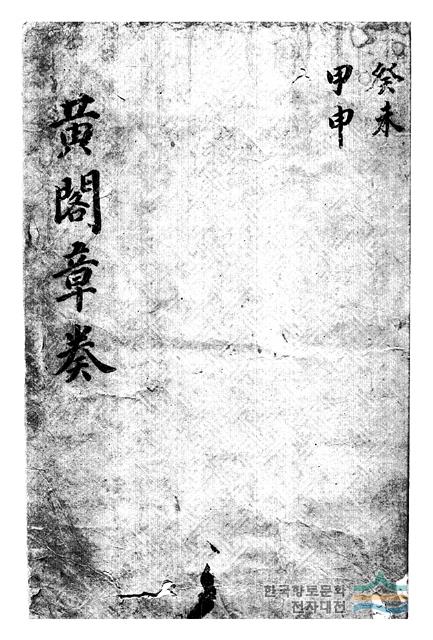 癸未
甲申
黃閣章奏
한국향토문화
전자대전